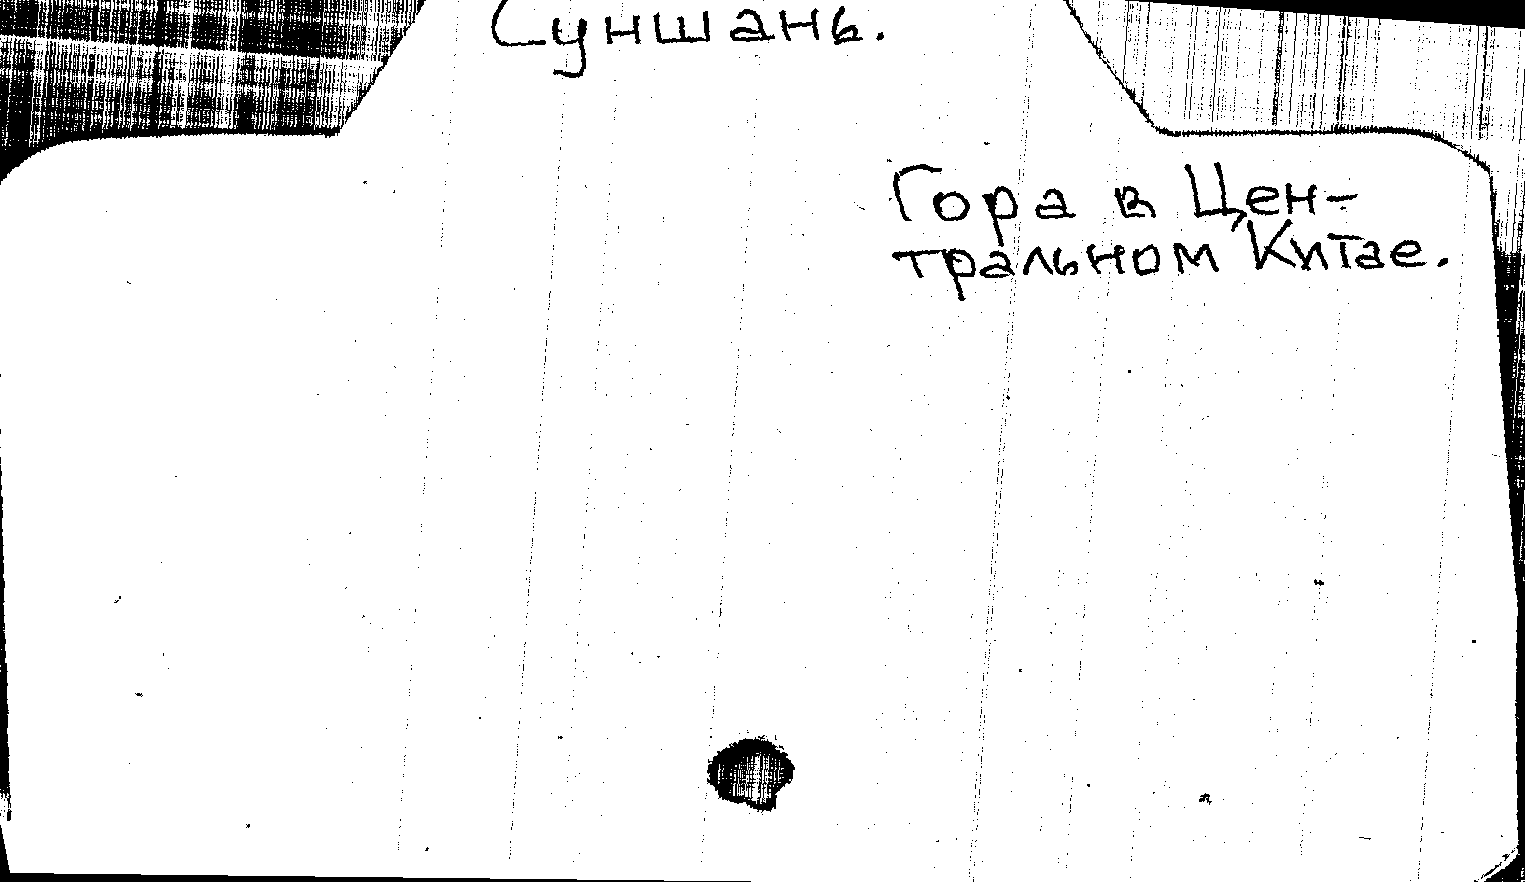 Суншань.
Гора в Цен-
тральном Китае.